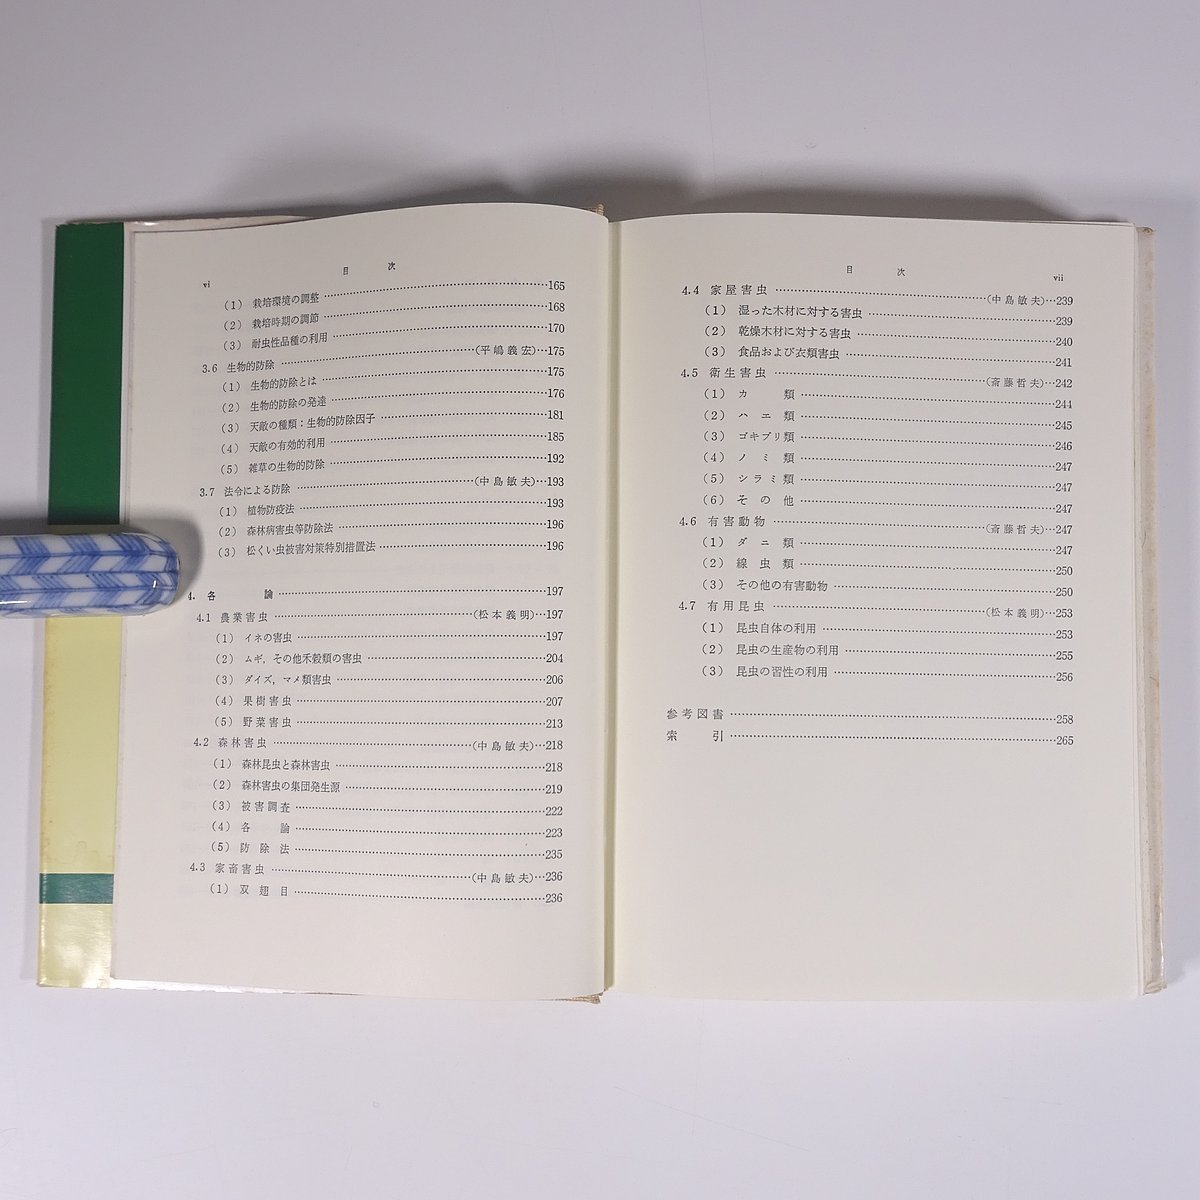 vi
目　　次
(1)　栽培環境の調整……165
(2)　栽培時期の調節……168
(3)　耐虫性品種の利用……170
3.6　生物的防除……(平嶋義宏)…175
(1)　生物的防除とは……175
(2)　生物的防除の発達……176
(3)　天敵の種類：生物的防除因子……181
(4)　天敵の有効的利用……185
(5)　雑草の生物的防除……192
3.7　法令による防除……(中島敏夫)…193
(1)　植物防疫法……193
(2)　森林病害虫等防除法……196
(3)　松くい虫被害対策特別措置法……196
4.　各　　論……197
4.1　農業害虫……(松本義明)…197
(1)　イネの害虫……197
(2)　ムギ，その他禾穀類の害虫……204
(3)　ダイズ，マメ類害虫……206
(4)　果樹害虫……207
(5)　野菜害虫……213
4.2　森林害虫……(中島敏夫)…218
(1)　森林昆虫と森林害虫……218
(2)　森林害虫の集団発生源……219
(3)　被害調査……222
(4)　各　　論……223
(5)　防除法……235
4.3　家畜害虫……(中島敏夫)…236
(1)　双翅目……236
目　　次
vii
4.4　家屋害虫……(中島敏夫)…239
(1)　湿った木材に対する害虫……239
(2)　乾燥木材に対する害虫……240
(3)　食品および衣類害虫……241
4.5　衛生害虫……(斎藤哲夫)…242
(1)　カ　　類……244
(2)　ハエ類……245
(3)　ゴキブリ類……246
(4)　ノミ類……247
(5)　シラミ類……247
(6)　その他……247
4.6　有害動物……(斎藤哲夫)…247
(1)　ダニ類……247
(2)　線虫類……250
(3)　その他の有害動物……250
4.7　有用昆虫……(松本義明)…253
(1)　昆虫自体の利用……253
(2)　昆虫の生産物の利用……255
(3)　昆虫の習性の利用……256
参考図書……258
索　　引……265